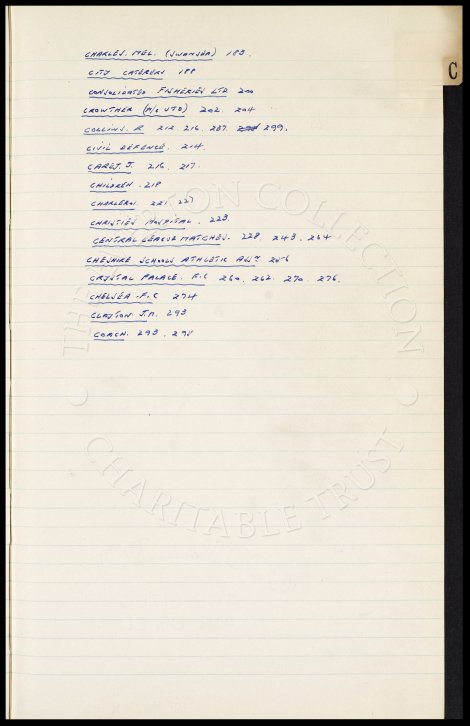 C
CHARLES. MEL. (SWANSEA) 183.
CITY CATERERS 188
CONSOLIDATED FISHERIES LTD 200
CROWTHER (M/C UTD) 202. 204
COLLINS. R 212. 216. 287. 299.
CIVIL DEFENCE. 214
CAREY. J. 216. 217.
CHILDREN. 218
CHARLEROI. 221. 227
CHRISTIES HOSPITAL. 223.
CENTRAL LEAGUE MATCHES. 228. 243. 264
CHESHIRE SCHOOLS ATHLETIC ASSN 256
CRYSTAL PALACE. F.C 260. 262. 270. 276.
CHELSEA. F.C 274
CLAYTON. J.M. 293
COACH. 293. 295
THE COLLECTION
CHARITABLE TRUST